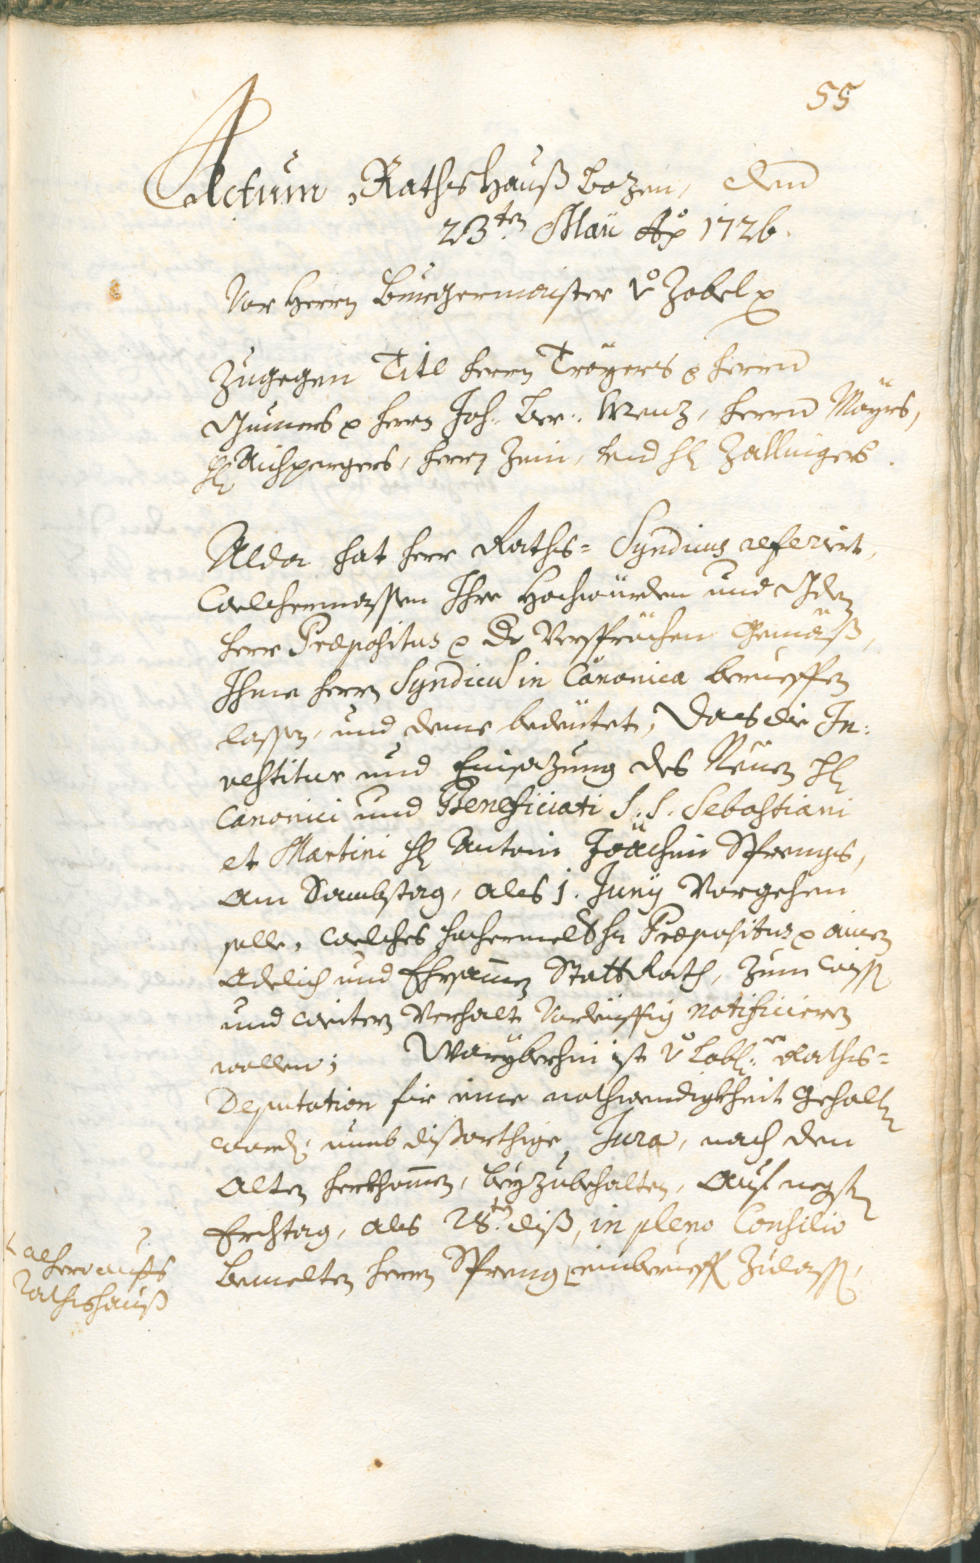 55
Actum Rathshauß Bozen, den
23ten May Ao 1726.
Vor Herrn Burgermaister v. Zobel p
Zugegen Titl Herrn Troyers p Herrn
Gumers p Herrn Joh: Bar: Menz, Herrn Mayrs,
H: Aichpergers, Herrn Zeni, und H: Zallingers.
Alda hat Herr Raths= Syndicus referirt,
welchermassen Ihre Hochwürden und Gdn
Herr Præpositus p De Versprüchen gemäß,
Ihme Herrn Syndicus in Canonica berueffen
lassen, und deme bedeütet, das die In:
vestitur und Einsazung des Neuen H:
Canonici und Beneficiati S: S: Sebastiani
et Martini H: Antoni Joachim Sprengs,
am Sambstag, als 1. Junÿ Vorgehen
solle, welches hochermelt H: Præpositus p ainen
Adelich und Ehrsamen Statt Rath, zum wiss:
und weitern Verhalt vorleüffig notificieren
wollen; Woryberhin ist v: Lobl:en Raths=
Deputation für eine nothwendigkheit gehalten
word: umb dißorthige Jura, nach den
alten herkhomen, beyzubehalten, auf negsten
Erchtag, als 28ten diß, in pleno Consilio
bemelten Herrn Spreng [einberueff: zulass:,
[alhero aufs
Rathshauß